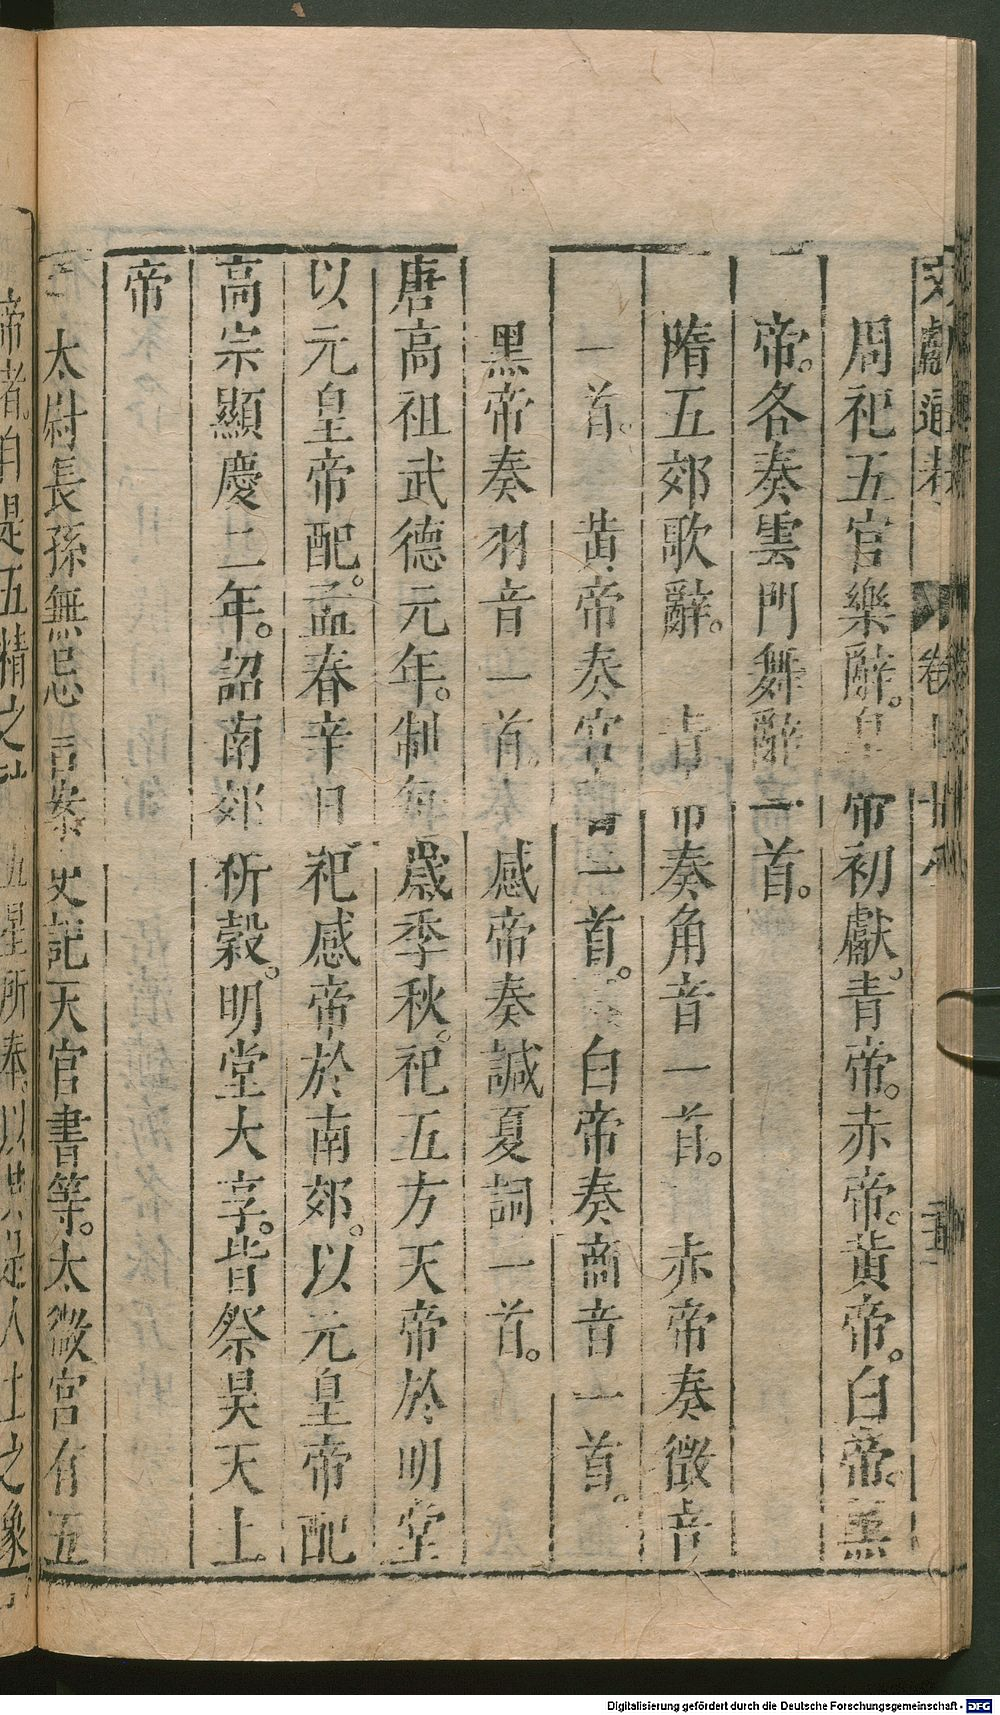 周祀五官樂辭。皇帝初獻。青帝。赤帝。黄帝。白帝。黑
帝。各奏雲門舞辭一首。
隋五郊歌辭。青帝奏角音一首。赤帝奏徵音
一首。黄帝奏宮音一首。白帝奏商音一首。
黑帝奏羽音一首。感帝奏諴夏詞一首。
唐高祖武德元年。制每歲季秋。祀五方天帝於明堂
以元皇帝配。孟春辛日祀感帝於南郊。以元皇帝配
高宗顯慶二年。詔南郊祈穀。明堂大享。皆祭昊天上
帝
太尉長孫無忌言案史記天官書等。太微宮有五
帝者自是五精之 五星所奉。以其是人主之象
Digitalisierung gefördert durch die Deutsche Forschungsgemeinschaft - DFG